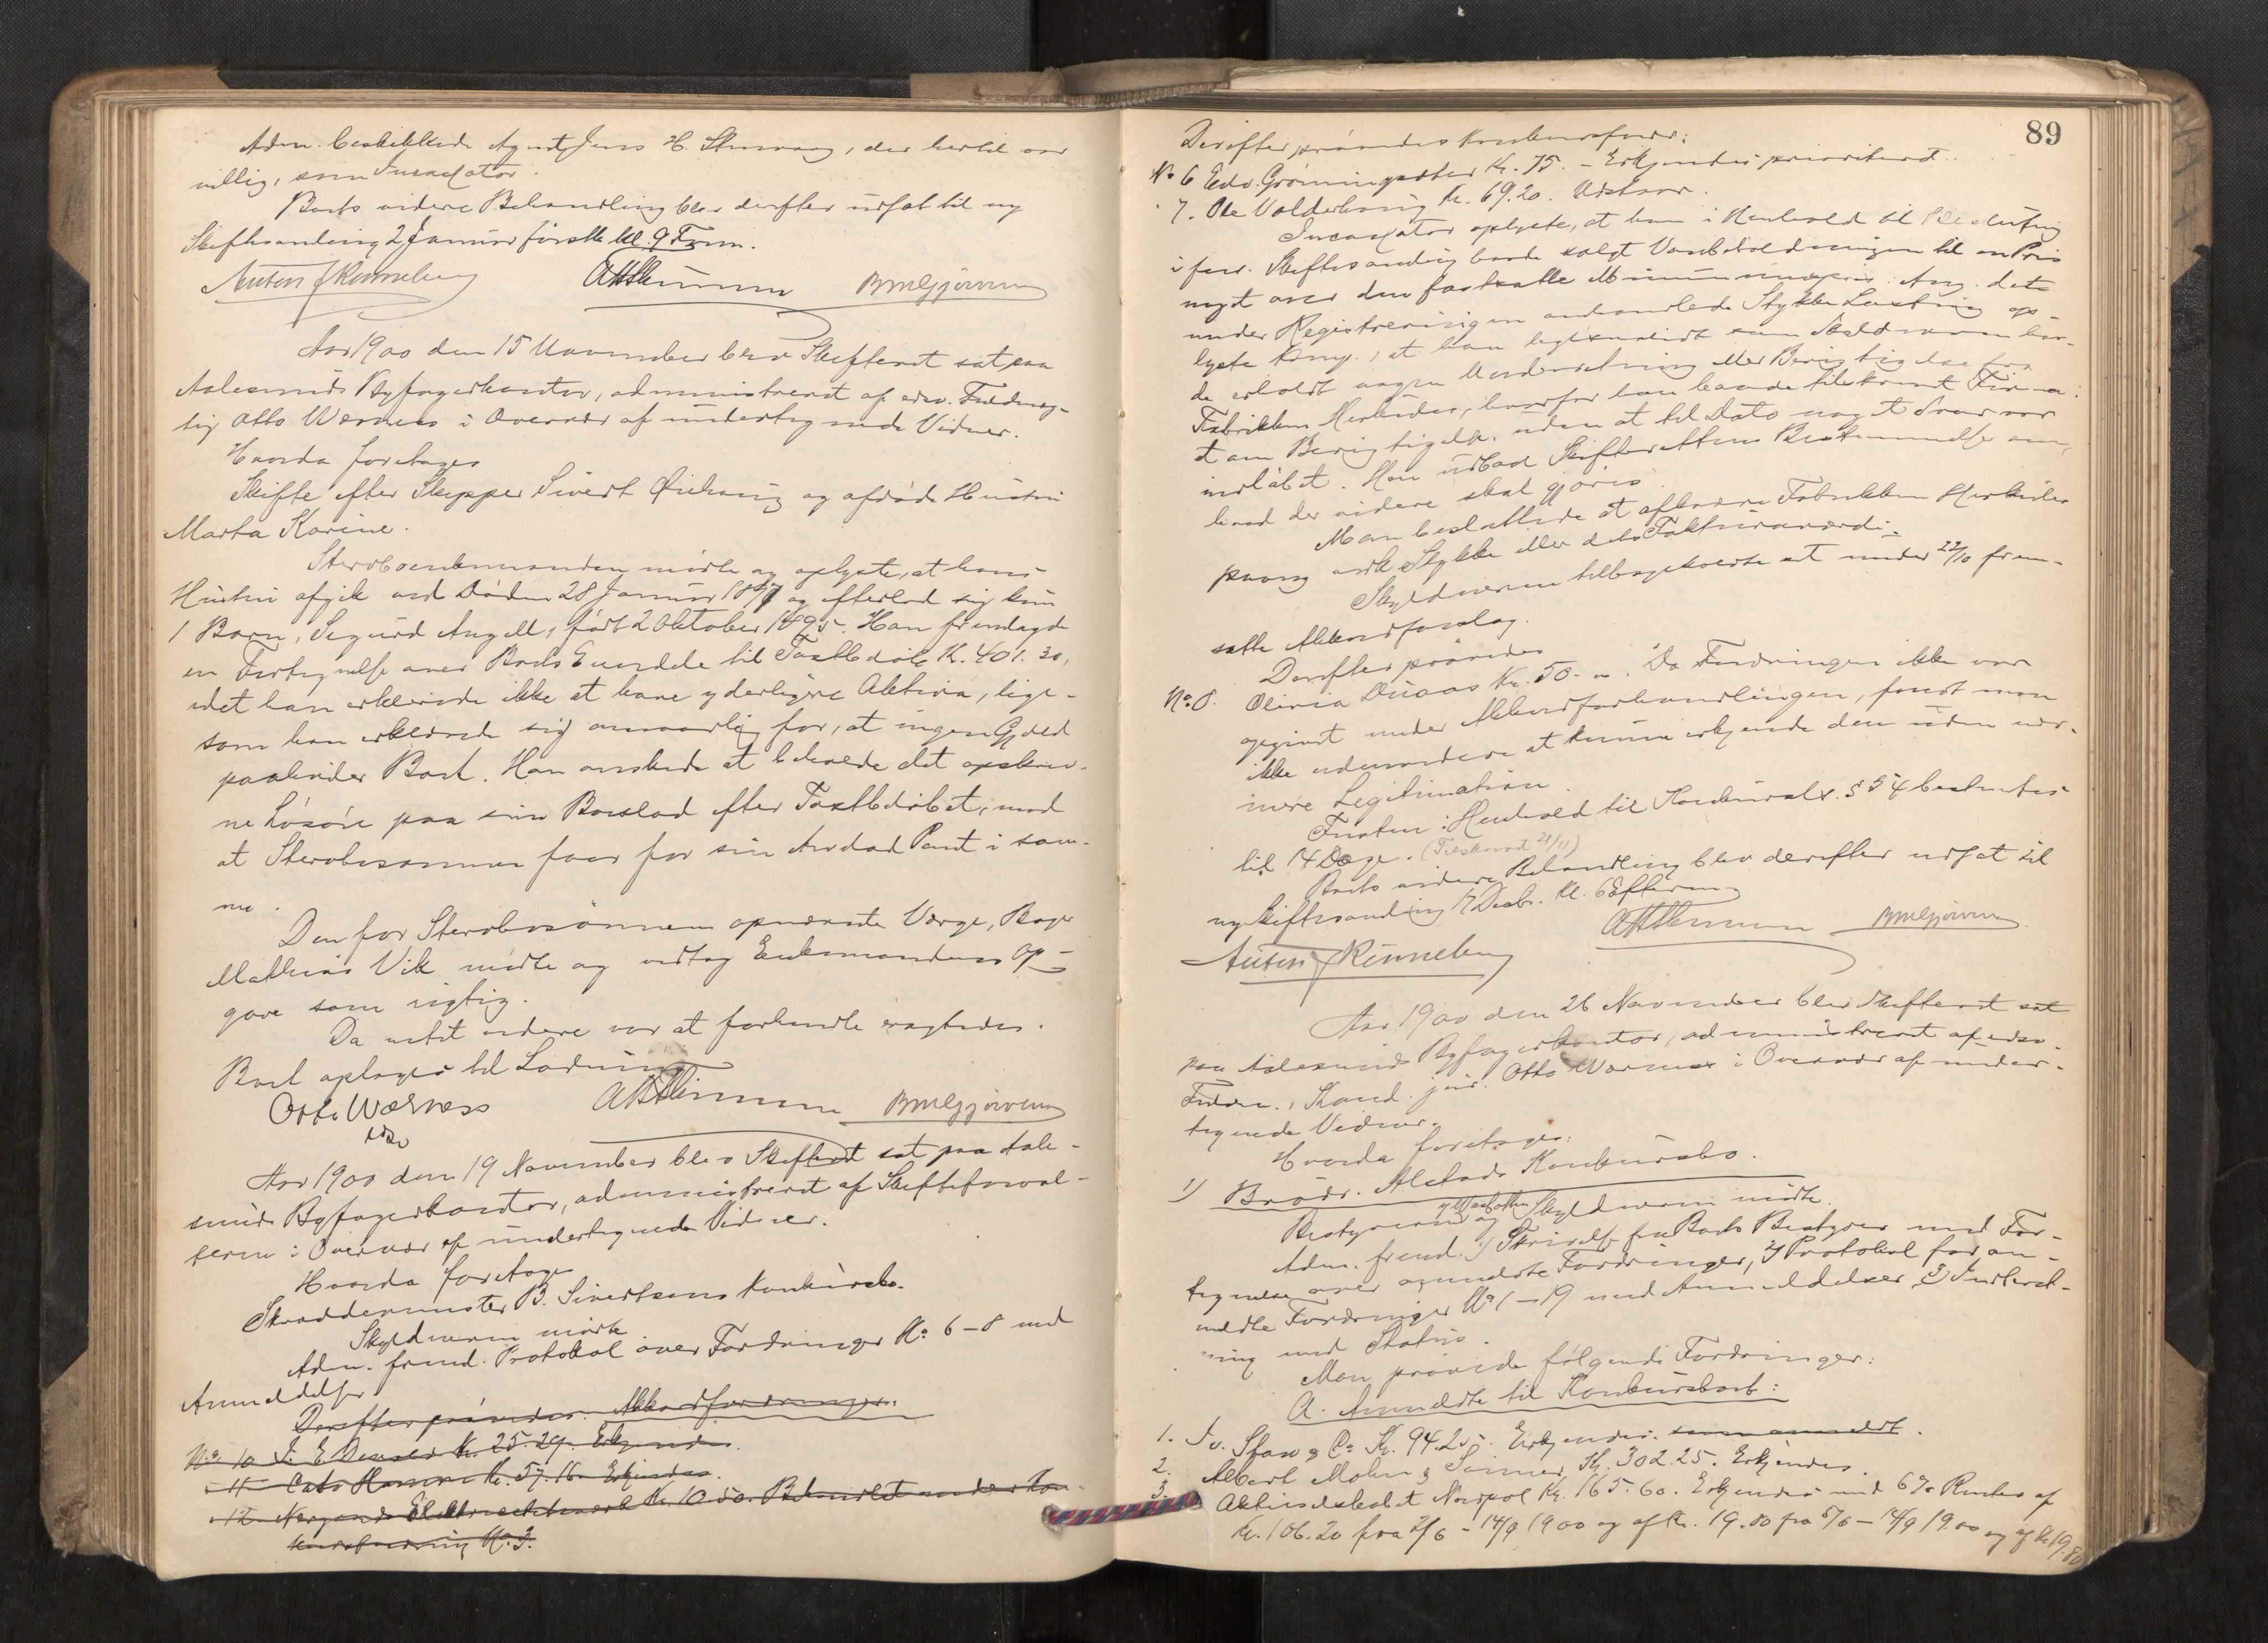 Adm. beskikkede Agent Jens H. , der hertil var
villig, som Incassator.
Boets videre Behandling blev derefter udsat til ny
Skiftesamling 2 Januar førstk. kl. 9 Form.
Anton J Rønneberg
Aar 1900 den 15 November blev Skifteret sat paa
Aalesunds Byfogedkontor, administreret af edsv. Fuldmæg-
tig Otto Wærness i Overvær af undertegnede Vidner.
Hvorda foretages
Skifte efter Skipper Sivert og afdøde Hustru
Marta Karine.
Sterboenkemanden mødte og oplyste, at hans
Hustru afgik ved Døden 28 Januar 1897 og efterlod sig kun
1 Barn, Sigurd Angell, født 2 Oktober 1895. Han fremlagde
en Fortegnelse over Boets Eiendele til Taxtbeløb Kr. 401.30,
idet han erklærede ikke at have yderligere Aktiva, lige-
som han erklærede sig ansvarlig for, at ingen Gjæld
paahviler Boet. Han ønskede at beholde det opskrev-
ne Løsøre paa sin Boeslod efter Taxtbeløbet, mod
at Sterbosønnen faar for sin Arvelod Pant i sam-
me.
Den for Sterbosønnen opnævnte Værge, Bager
Mathias Vik mødte og vedtog Enkemandens Op-
gave som rigtig.
Da intet videre var at forhandle sagtedes.
Boet optages til Lodning
Otto Wærness
Aar 1900 den 19 November blev Skifteret sat paa Aale-
sunds Byfogedkontor, administreret af Skifteforval-
teren i Overvær af undertegnede Vidner.
Hvorda foretages
Skræddermester B. Sivertsens Konkursbo.
Skyldneren mødte
Adm. freml. Protokol over Fordringer No 6-8 med
Anmeldelser
Derefter prøvedes Akkordfordringer:
No 10 J. E. Kr. 25.29. Erkjendes.
" 11 Kr. 57.16. Erkjendes.
" 12 Kr. 10.50. Behandlet under Kon-
kursfordring No 3.
89
Derefter prøvedes Konkursfordr:
No 6 Edv. Grønningsæter Kr. 75. - Erkjendes prioriteret.
" 7. Ole Valderhaug Kr. 69.20. Udstaar.
Incassator oplyste, at han i Henhold til Beslutning
i forr. Skiftesamling havde solgt Varebeholdningen til en Pris
noget over den fastsatte Minimumspris. Ang. det
under Registreringen omhandlede Stykke Lasting op-
lyste Komp., at han ligesaalidt som Skyldneren hav-
de erholdt nogen Underretning eller Berigtigelse fra
Fabrikken Merkur, hvorfor han havde tilskrevet Firma-
et om Berigtigelse, uden at til Dato noget Svar var
indløbet. Han udbad Skifterettens Bestemmelse om,
hvad der videre skal gjøres.
Man besluttede at afkræve Fabrikken
paany enten Stykket eller dets Fakturaværdi.
Skyldneren tilbagekaldte sit under 22/10 frem-
satte Akkordforslag.
Derefter prøvedes
No 8. Olivia Kr. 50.-. Da Fordringen ikke var
opgivet under Akkordforhandlingen, fandt man
ikke at kunne erkjende den uden nær-
mere Legitimation.
Fristen i Henhold til Konkurslov. § 54 bestemtes
til 14 Dage. (Tilskrevet 21/11)
Boets videre Behandling blev derefter udsat til
ny Skiftesamling 17 Decbr. Kl. 6 Efterm.
Anton J Rønneberg
Aar 1900 den 26 November blev Skifteret sat
paa Aalesunds Byfogedkontor, administreret af edsv.
Fuldm., Kand. jur. Otto Wærness i Overvær af under-
tegnede Vidner.
Hvorda foretages:
1) Brødr. Alstads Konkursbo.
Bestyreren og Skyldneren mødte.
Adm. freml. 1) Skrivelse fra Boets Bestyrer med For-
tegnelse over anmeldte Fordringer, 2) Protokol for an-
meldte Fordringer No 1-19 med Anmeldelser 3) Indberet-
ning med Status.
Man prøvede følgende Fordringer:
A. Anmeldte til Konkursboet:
1. & Co Kr. 94.25. Erkjendes som anmeldt.
2. Albert Mohn & Sønner Kr. 302.25. Erkjendes.
3. Aktieselskabet Nordpol Kr. 165.60. Erkjendes med 6% Renter af
Kr. 106.20 fra 2/6 - 14/9 1900 og af Kr. 19.80 fra 5/6 - 14/9 1900 og af Kr 19.80